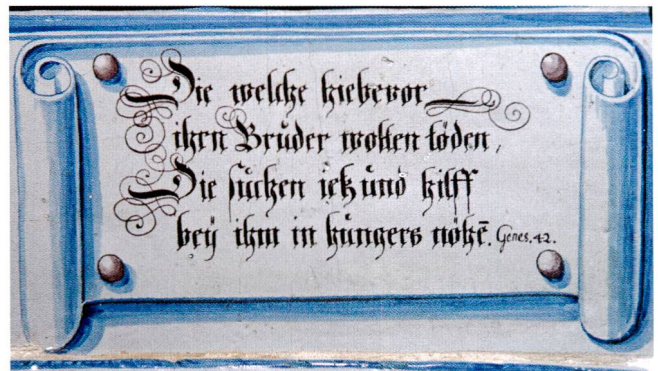 Die welche hiebevor
ihrn Brůder wolten töden,
Die sůchen ietzůnd hilff
beÿ ihm in hůngers nöthē. Genes. 42.